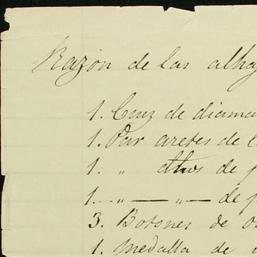 Razón de las alhaj
1. Cruz de diama
1. Par aretes de
1. " dthos de p
1. — " — " — de p
3. Botones de o
1. Medalla de